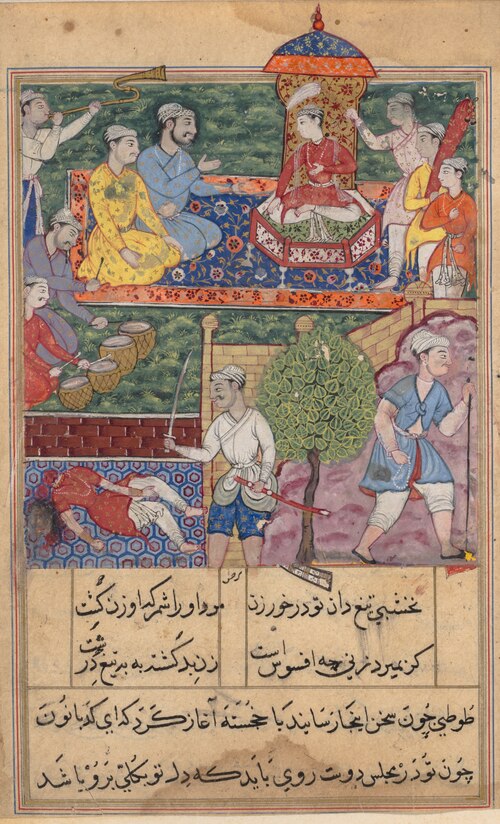 نخشبی تیغ دان تو درخور زن مرد او را شمر که او زن کشت
کر نمیرد زنی چه افسوس است زن بد کشته به به تیغ درشت
طوطی چون سخن اینجا رسانید با خجسته آغاز کرد که ای کدبانو
چون تو در مجلس دوست روی باید که دل تو بکلی برو باشد